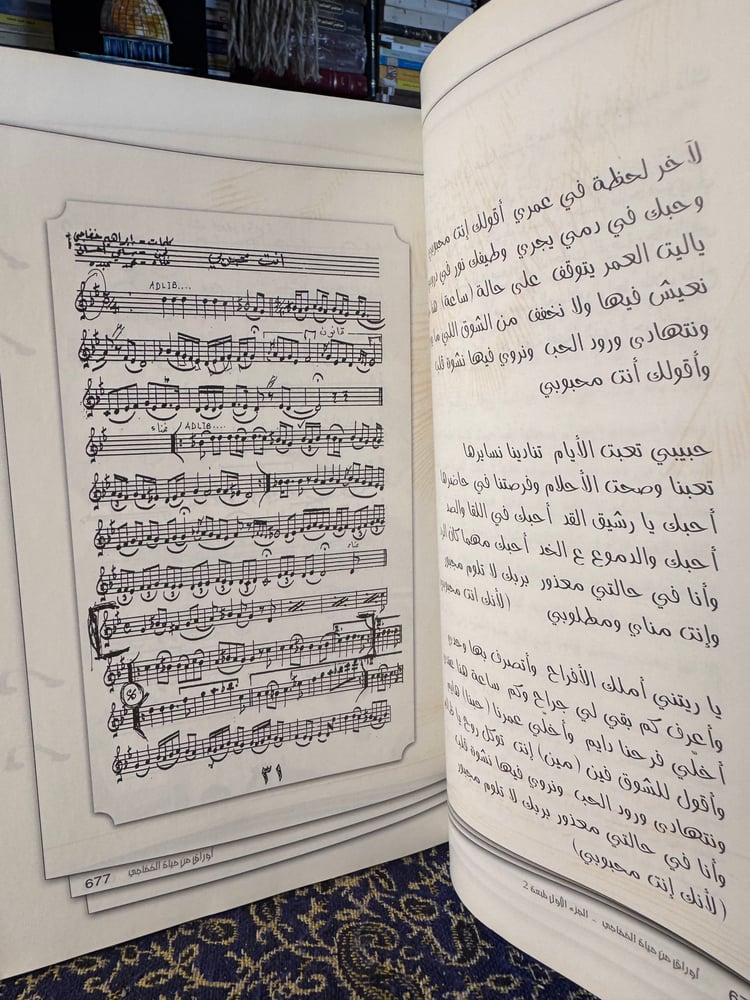 لآخر لحظة في عمري أقولك إنت محبوبي
وحبك في دمي يجري وطيفك نور في
ياليت العمر يتوقف على حالة (ساعة)
نعيش فيها ولا نخفف من الشوق اللي
ونتهادى ورود الحب ونروي فيها نشوة
وأقولك أنت محبوبي
حبيبي تعبت الأيام تنادينا نسايرها
تعبنا وصحت الأحلام وفرصتنا في حاضرها
أحبك يا رشيق القد أحبك في اللقا والصد
أحبك والدموع ع الخد أحبك مهما كان
وأنا في حالتي معذور بربك لا تلوم مجبور
وإنت مناي ومطلوبي (لأنك إنت محبوبي
يا ريتني أملك الأفراح وأتصرف بها وحدي
وأعرف كم بقي لي جراح وكم ساعة هنا
أخلّي فرحنا دايم وأخلّي عمرنا (حبنا) هايم
وأقول للشوق فين (مين) إنت توكل روح يا
ونتهادى ورود الحب ونروي فيها نشوة
وأنا في حالتي معذور بربك لا تلوم مجبور
(لأنك إنت محبوبي)
أوراق من حياة الخفاجي - الجزء الأول طبعة 2
كلمات = ابراهيم خفاجي
انت محبوبي
ADLIB....
قانون
غناء
ADLIB....
غناء
٣١
677
أوراق من حياة الخفاجي